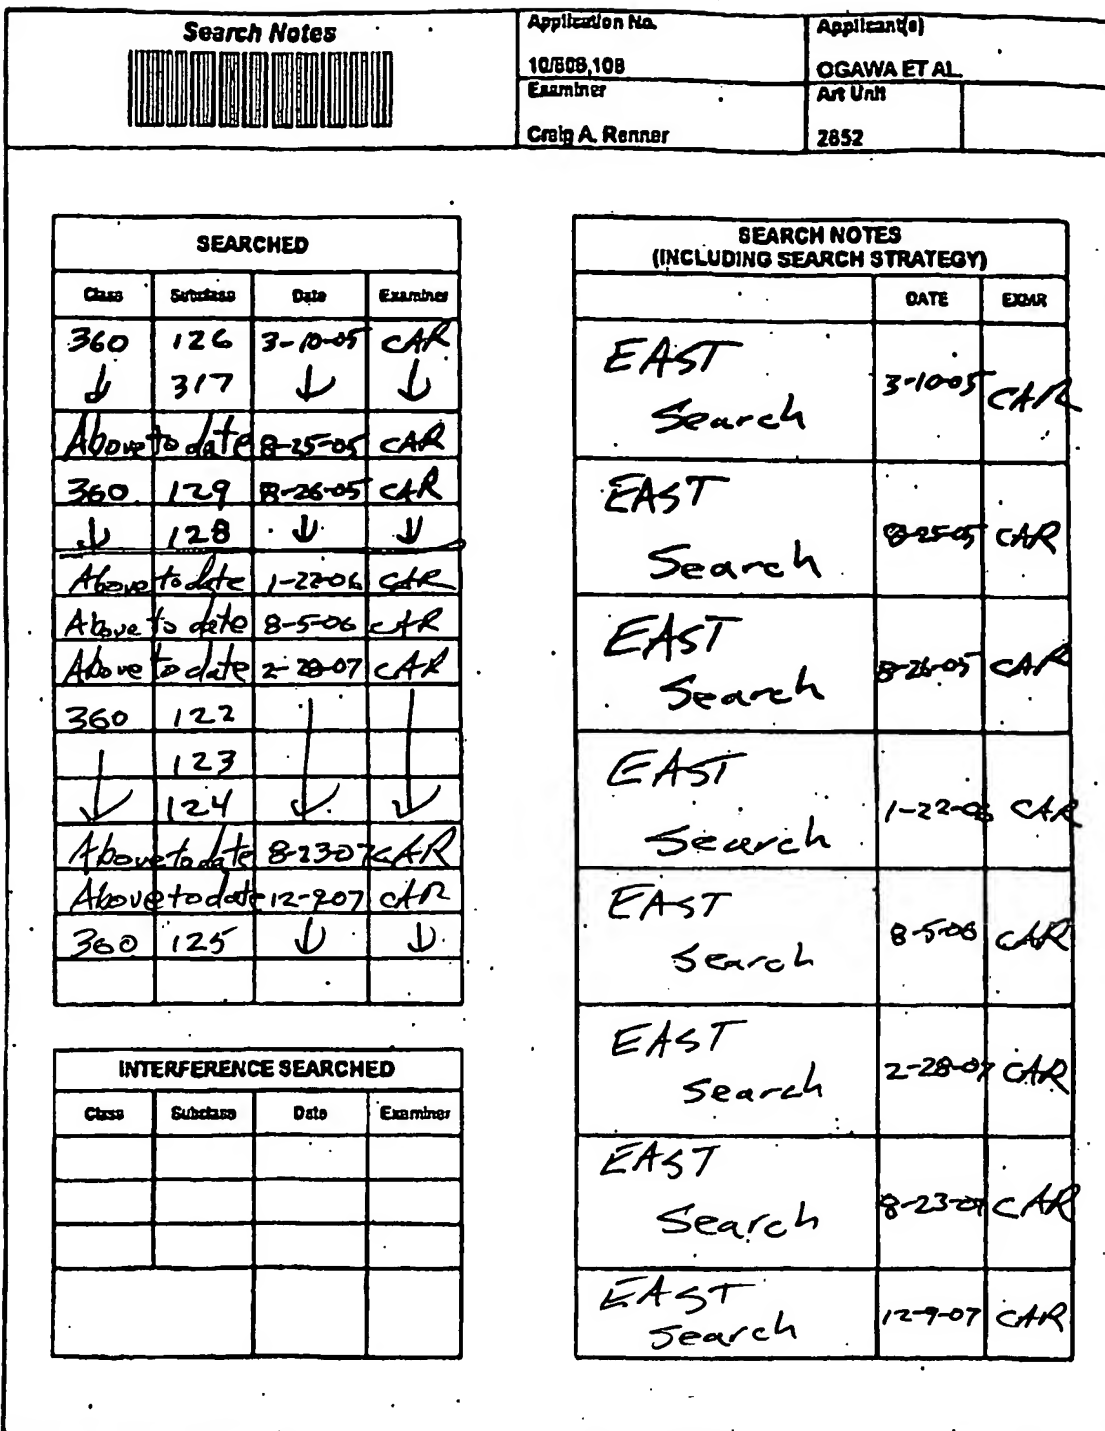 Search Notes
Application No.
Applicant(s)
10/608,108
OGAWA ET AL.
Examiner
Art Unit
Craig A. Renner
2652
SEARCHED
Class Subclass Date Examiner
360 126 3-10-05 CAR
↓ 317 ↓ ↓
Above to date 8-25-05 CAR
360 129 8-26-05 CAR
↓ 128 ↓ ↓
Above to date 1-22-06 CAR
Above to date 8-5-06 CAR
Above to date 2-28-07 CAR
360 122
123
↓ 124 ↓ ↓
Above to date 8-23-07 CAR
Above to date 12-9-07 CAR
360 125 ↓ ↓
INTERFERENCE SEARCHED
Class Subclass Date Examiner
SEARCH NOTES
(INCLUDING SEARCH STRATEGY)
DATE EXMR
EAST
Search 3-10-05 CAR
EAST
Search 8-25-05 CAR
EAST
Search 8-26-05 CAR
EAST
Search 1-22-06 CAR
EAST
Search 8-5-06 CAR
EAST
Search 2-28-07 CAR
EAST
Search 8-23-07 CAR
EAST
Search 12-9-07 CAR